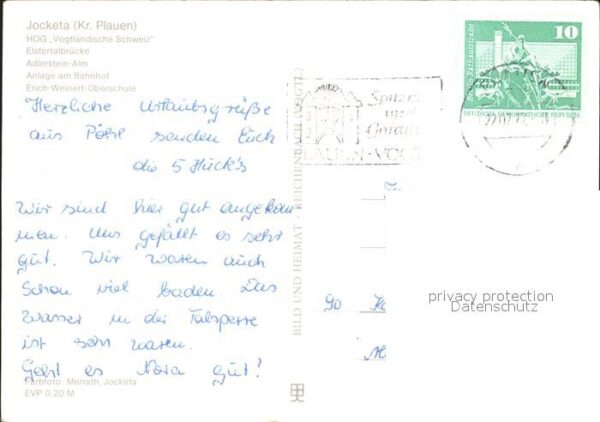 Jocketa (Kr. Plauen)
HOG „Vogtländische Schweiz"
Elstertalbrücke
Adlerstein-Alm
Anlage am Bahnhof
Erich-Weinert-Oberschule
Herzliche Urlaubsgrüße
aus Pöhl senden Euch
die 5 Hück's
Wir sind hier gut angekom
men. Uns gefällt es sehr
gut. Wir waren auch
schon viel baden. Das
Wasser in der Talsperre
ist sehr warm.
Geht es Nora gut?
Farbfoto: Morrath, Jocketa
EVP 0.20 M
BILD UND HEIMAT · REICHENBACH (VOGTL)
Spitzen
und
Gardin
LAUEN · VOGT
10
DEUTSCHE DEMOKRATISCHE REPUBLIK
90
privacy protection
Datenschutz